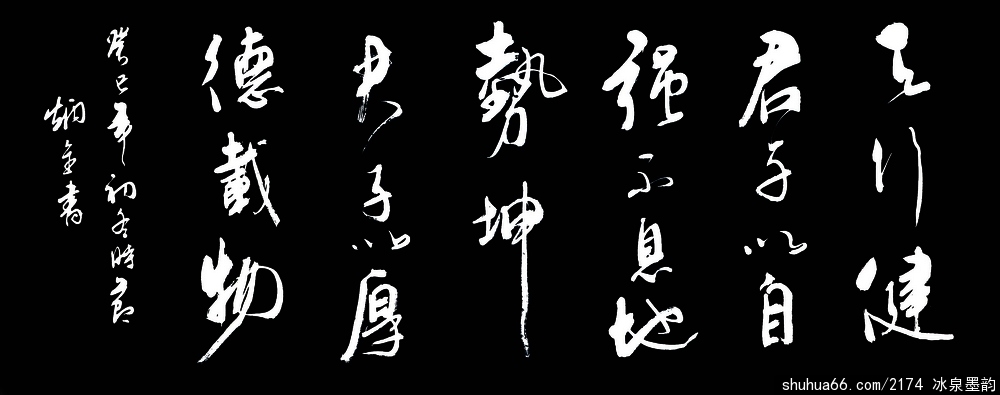 天行健
君子以自
强不息地
勢坤
君子以厚
德載物
癸巳年初冬時節
炳金書
shuhua66.com/2174 冰泉墨韵